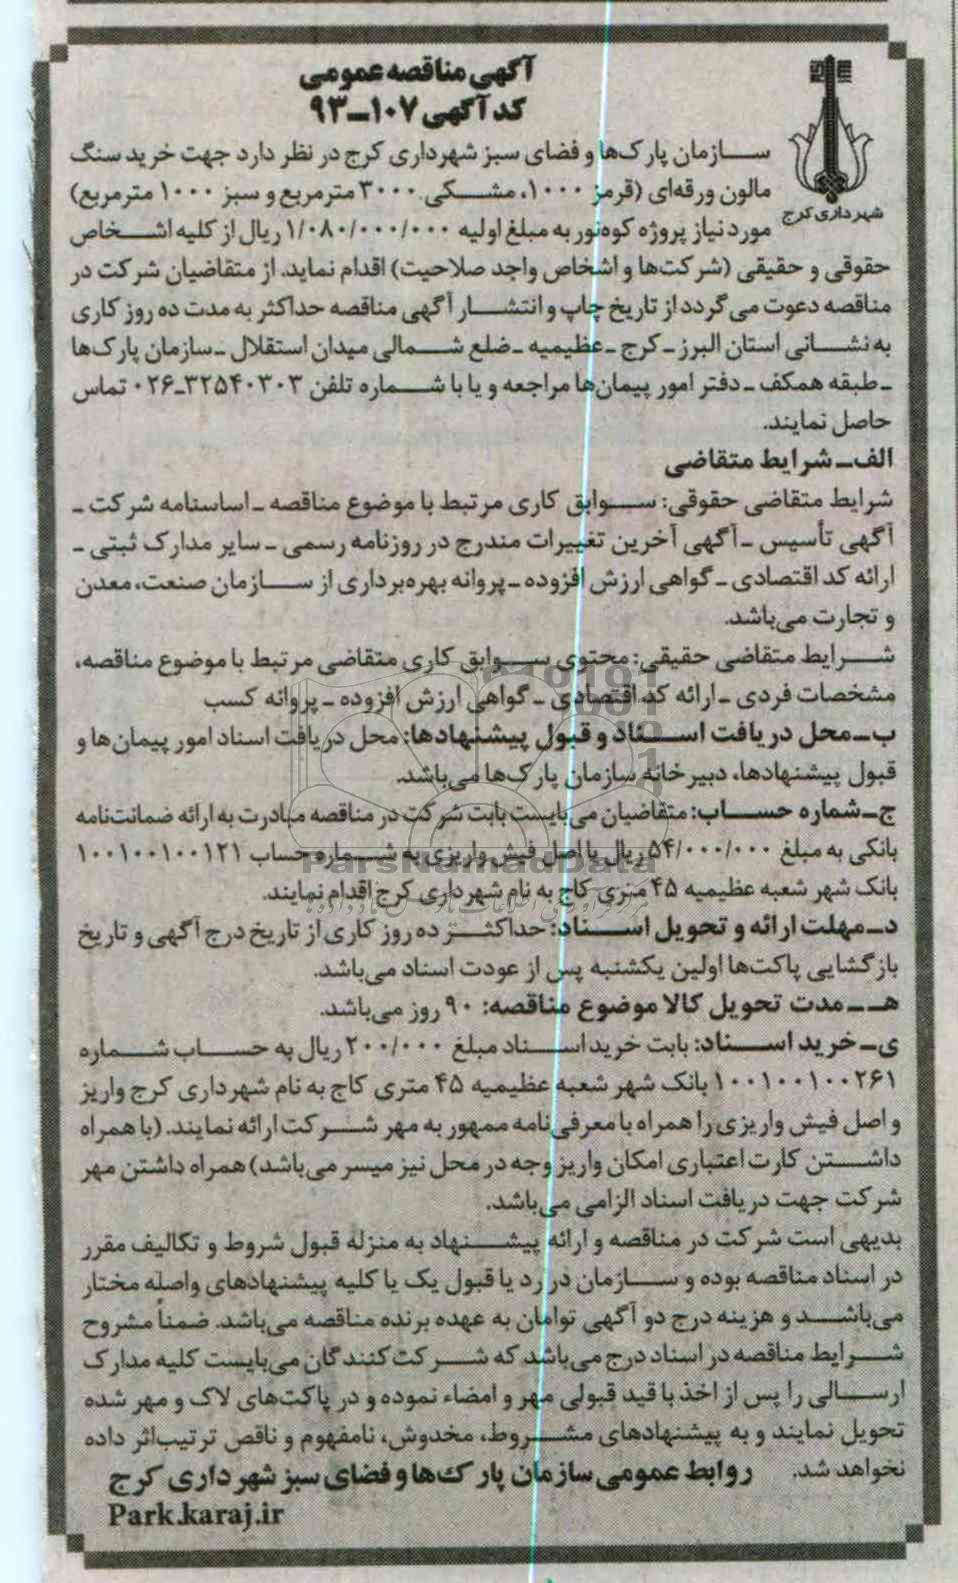 آگهی مناقصه عمومی
کد آگهی ۱۰۷ـ۹۳
شهرداری کرج
سازمان پارک‌ها و فضای سبز شهرداری کرج در نظر دارد جهت خرید سنگ
مالون ورقه‌ای (قرمز ۱۰۰۰، مشکی ۳۰۰۰ مترمربع و سبز ۱۰۰۰ مترمربع)
مورد نیاز پروژه کوه‌نور به مبلغ اولیه ۱/۰۸۰/۰۰۰/۰۰۰ ریال از کلیه اشخاص
حقوقی و حقیقی (شرکت‌ها و اشخاص واجد صلاحیت) اقدام نماید. از متقاضیان شرکت در
مناقصه دعوت می‌گردد از تاریخ چاپ و انتشار آگهی مناقصه حداکثر به مدت ده روز کاری
به نشانی استان البرز ـ کرج ـ عظیمیه ـ ضلع شمالی میدان استقلال ـ سازمان پارک‌ها
ـ طبقه همکف ـ دفتر امور پیمان‌ها مراجعه و یا با شماره تلفن ۳۲۵۴۰۳۰۳ـ۰۲۶ تماس
حاصل نمایند.
الف ـ شرایط متقاضی
شرایط متقاضی حقوقی: سوابق کاری مرتبط با موضوع مناقصه ـ اساسنامه شرکت ـ
آگهی تأسیس ـ آگهی آخرین تغییرات مندرج در روزنامه رسمی ـ سایر مدارک ثبتی ـ
ارائه کد اقتصادی ـ گواهی ارزش افزوده ـ پروانه بهره‌برداری از سازمان صنعت، معدن
و تجارت می‌باشد.
شرایط متقاضی حقیقی: محتوی سوابق کاری متقاضی مرتبط با موضوع مناقصه،
مشخصات فردی ـ ارائه کد اقتصادی ـ گواهی ارزش افزوده ـ پروانه کسب
ب ـ محل دریافت اسناد و قبول پیشنهادها: محل دریافت اسناد امور پیمان‌ها و
قبول پیشنهادها، دبیرخانه سازمان پارک‌ها می‌باشد.
ج ـ شماره حساب: متقاضیان می‌بایست بابت شرکت در مناقصه مبادرت به ارائه ضمانت‌نامه
بانکی به مبلغ ۵۴/۰۰۰/۰۰۰ ریال یا اصل فیش واریزی به شماره حساب ۱۰۰۱۰۰۱۰۰۱۲۱
ParsNamadData
بانک شهر شعبه عظیمیه ۴۵ متری کاج به نام شهرداری کرج اقدام نمایند.
د ـ مهلت ارائه و تحویل اسناد: حداکثر ده روز کاری از تاریخ درج آگهی و تاریخ
بازگشایی پاکت‌ها اولین یکشنبه پس از عودت اسناد می‌باشد.
هـ ـ مدت تحویل کالا موضوع مناقصه: ۹۰ روز می‌باشد.
ی ـ خرید اسناد: بابت خرید اسناد مبلغ ۲۰۰/۰۰۰ ریال به حساب شماره
۱۰۰۱۰۰۱۰۰۲۶۱ بانک شهر شعبه عظیمیه ۴۵ متری کاج به نام شهرداری کرج واریز
و اصل فیش واریزی را همراه با معرفی‌نامه ممهور به مهر شرکت ارائه نمایند. (با همراه
داشتن کارت اعتباری امکان واریز وجه در محل نیز میسر می‌باشد) همراه داشتن مهر
شرکت جهت دریافت اسناد الزامی می‌باشد.
بدیهی است شرکت در مناقصه و ارائه پیشنهاد به منزله قبول شروط و تکالیف مقرر
در اسناد مناقصه بوده و سازمان در رد یا قبول یک یا کلیه پیشنهادهای واصله مختار
می‌باشد و هزینه درج دو آگهی توامان به عهده برنده مناقصه می‌باشد. ضمناً مشروح
شرایط مناقصه در اسناد درج می‌باشد که شرکت کنندگان می‌بایست کلیه مدارک
ارسالی را پس از اخذ با قید قبولی مهر و امضاء نموده و در پاکت‌های لاک و مهر شده
تحویل نمایند و به پیشنهادهای مشروط، مخدوش، نامفهوم و ناقص ترتیب‌اثر داده
نخواهد شد. روابط عمومی سازمان پارک‌ها و فضای سبز شهرداری کرج
Park.karaj.ir